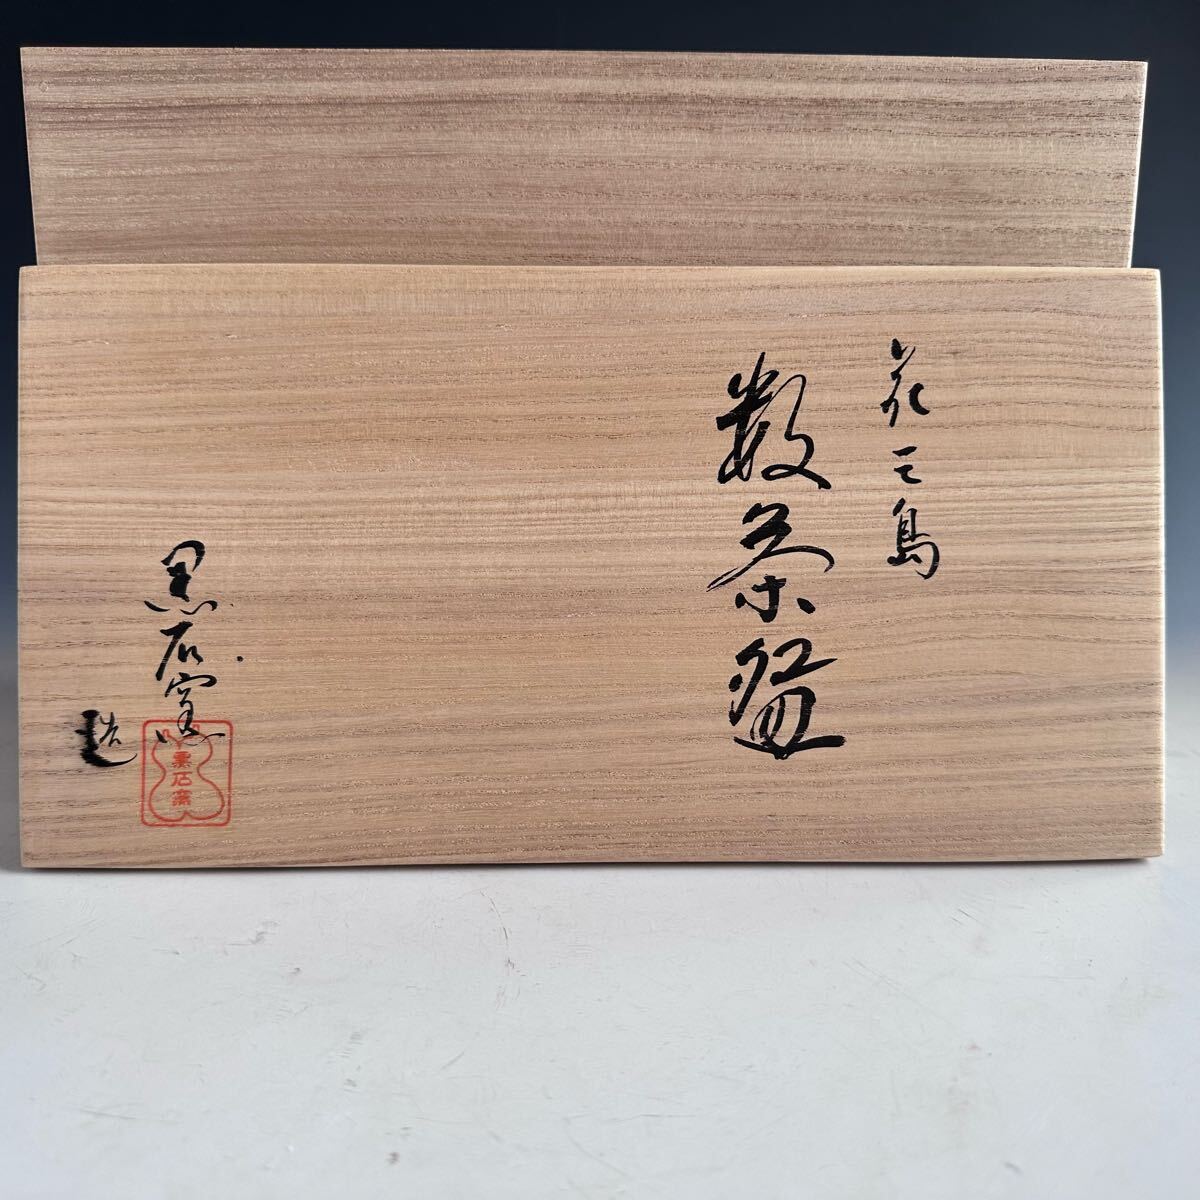 花三島
数茶盌
黒石窯
造
黒石窯